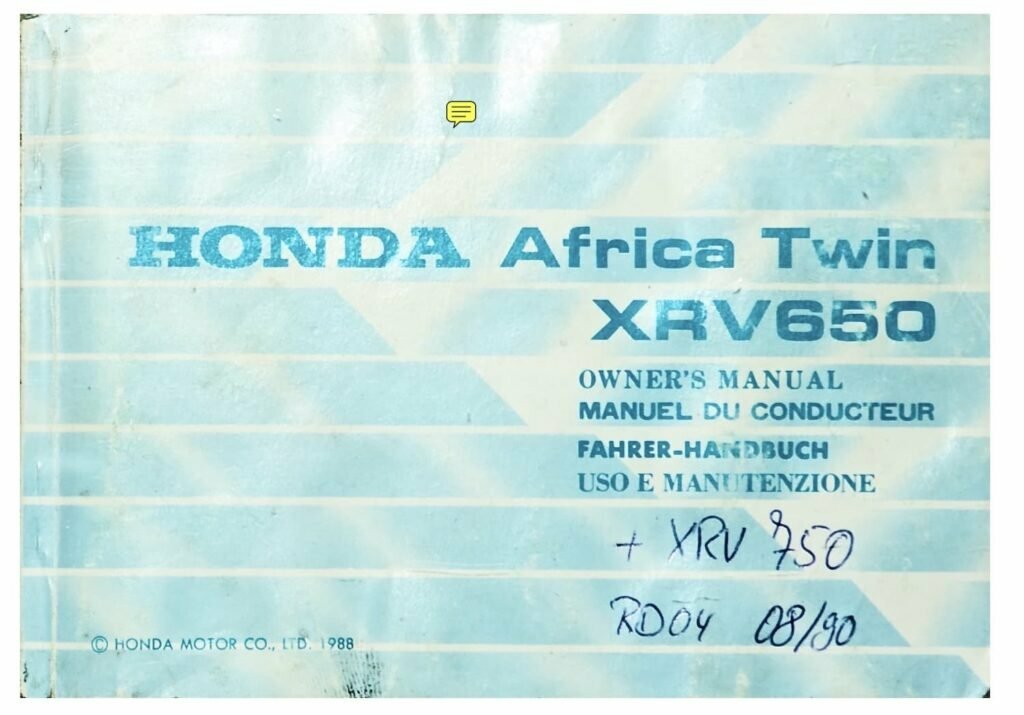 HONDA Africa Twin
XRV650
OWNER'S MANUAL
MANUEL DU CONDUCTEUR
FAHRER-HANDBUCH
USO E MANUTENZIONE
+ XRV 750
RD04 08/90
© HONDA MOTOR CO., LTD. 1988